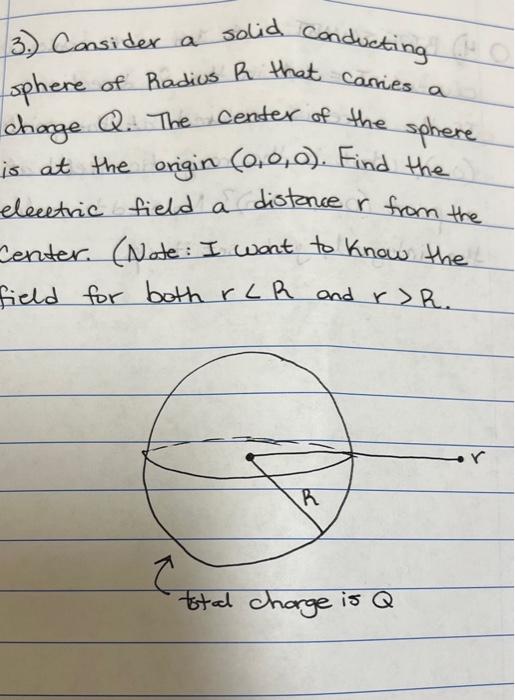 3.) Consider a solid conducting
sphere of Radius R that carries a
charge Q. The center of the sphere
is at the origin (0,0,0). Find the
elecetric field a distance r from the
center. (Note: I want to know the
field for both r < R and r > R.
r
R
total charge is Q